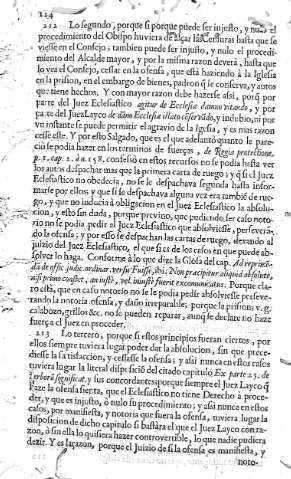 224
212 Lo segundo, porque si porque puede ser injusto, y nulo el
procedimiento del Obispo huviera de alçar las censuras hasta que se
viesse en el Consejo; tambien puede ser injusto, y nulo el procedi-
miento del Alcalde mayor, y por la misma razon deverà, hasta que
lo vea el Consejo, cessar en la ofensa, que està haziendo à la Iglesia
en la prision, en el embargo de bienes, padron que se conserva, y autos
que tiene hechos. Y con mayor razon debe hazerse assi, porq̃ por
parte del Juez Eclesiastico agitur de Ecclesiæ damno vitando, y por
parte del Juez Layco de damno Ecclesiæ illato conservado, y indubio, ni por
vn instante se puede permitir el agravio de la Iglesia, y es mas razon
cesse este. Y por esso Salgado, que es el que adelantò quanto le pare-
ciò se podia hazer en los terminos de fuerças, de Regia protectione,
p. 2. cap. 2. nu. 158. confessò en estos recursos no se podia hasta ver
los autos despachar mas que la primera carta de ruego; y q̃ si el Juez
Eclesiastico no obedecia, no se le despachava segunda hasta infor-
marse por ellos; y que si se despachava alguna vez era tambiē de rue-
go, y que no inducia à obligacion en el Juez Eclesiastico la absolu-
cion, y esto sin duda, porque previno, que pudiendo ser caso noto-
rio no se podia pedir al Juez Eclesiastico que absolviesse, perseverã-
do la ofensa; y por esso se despachan las cartas de ruego, dexando al
juizio del Juez Eclesiastico, el que si es de los casos en que puede ab-
solver lo haga. Conforme à lo que dize la Glosa del cap. Ad reprimẽ-
dã de offic. judic. ordinar. verbo Fuisse, ibi: Non præcipitur aliquid absolute,
nisi primo constet, an iustè, vel iniustè fuerit excommunicatus. Porque cla-
ro està, que en caso notorio no se le podia pedir absolviesse perseve-
rando la notoria ofensa, y daño irreparable; porque la prision; v. g.
calabozo, grillos &c. no se pueden reparar, aunq̃ se declare no haze
fuerça el Juez en proceder.
213 Lo tercero, porque si estos principios fueran ciertos, por
ellos siempre tuviera lugar poder dar la absolucion, sin que prece-
diesse la satisfaccion, y cessasse la ofensa; y assi nunca en estos casos
tuviera lugar la literal disposiciõ del citado capitulo Ex parte 23. de
verborũ significat. y sus concordantes: porque siempre el Juez Layco q̃
haze la ofensa sienta, que el Eclesiastico no tiene Derecho à proce-
der, y que es injusto, ò nulo su procedimiento; y assi nunca en estos
casos, por manifiesta, y notoria que fuera la ofensa, tuviera lugar la
disposicion de dicho capitulo si bastàra el que el Juez Layco con ra-
zon, ò sin ella lo quisiera hazer controvertible, lo que nadie pudiera
dezir. Y es la razon, porque el Juizio de si la ofensa es manifiesta, y
noto-